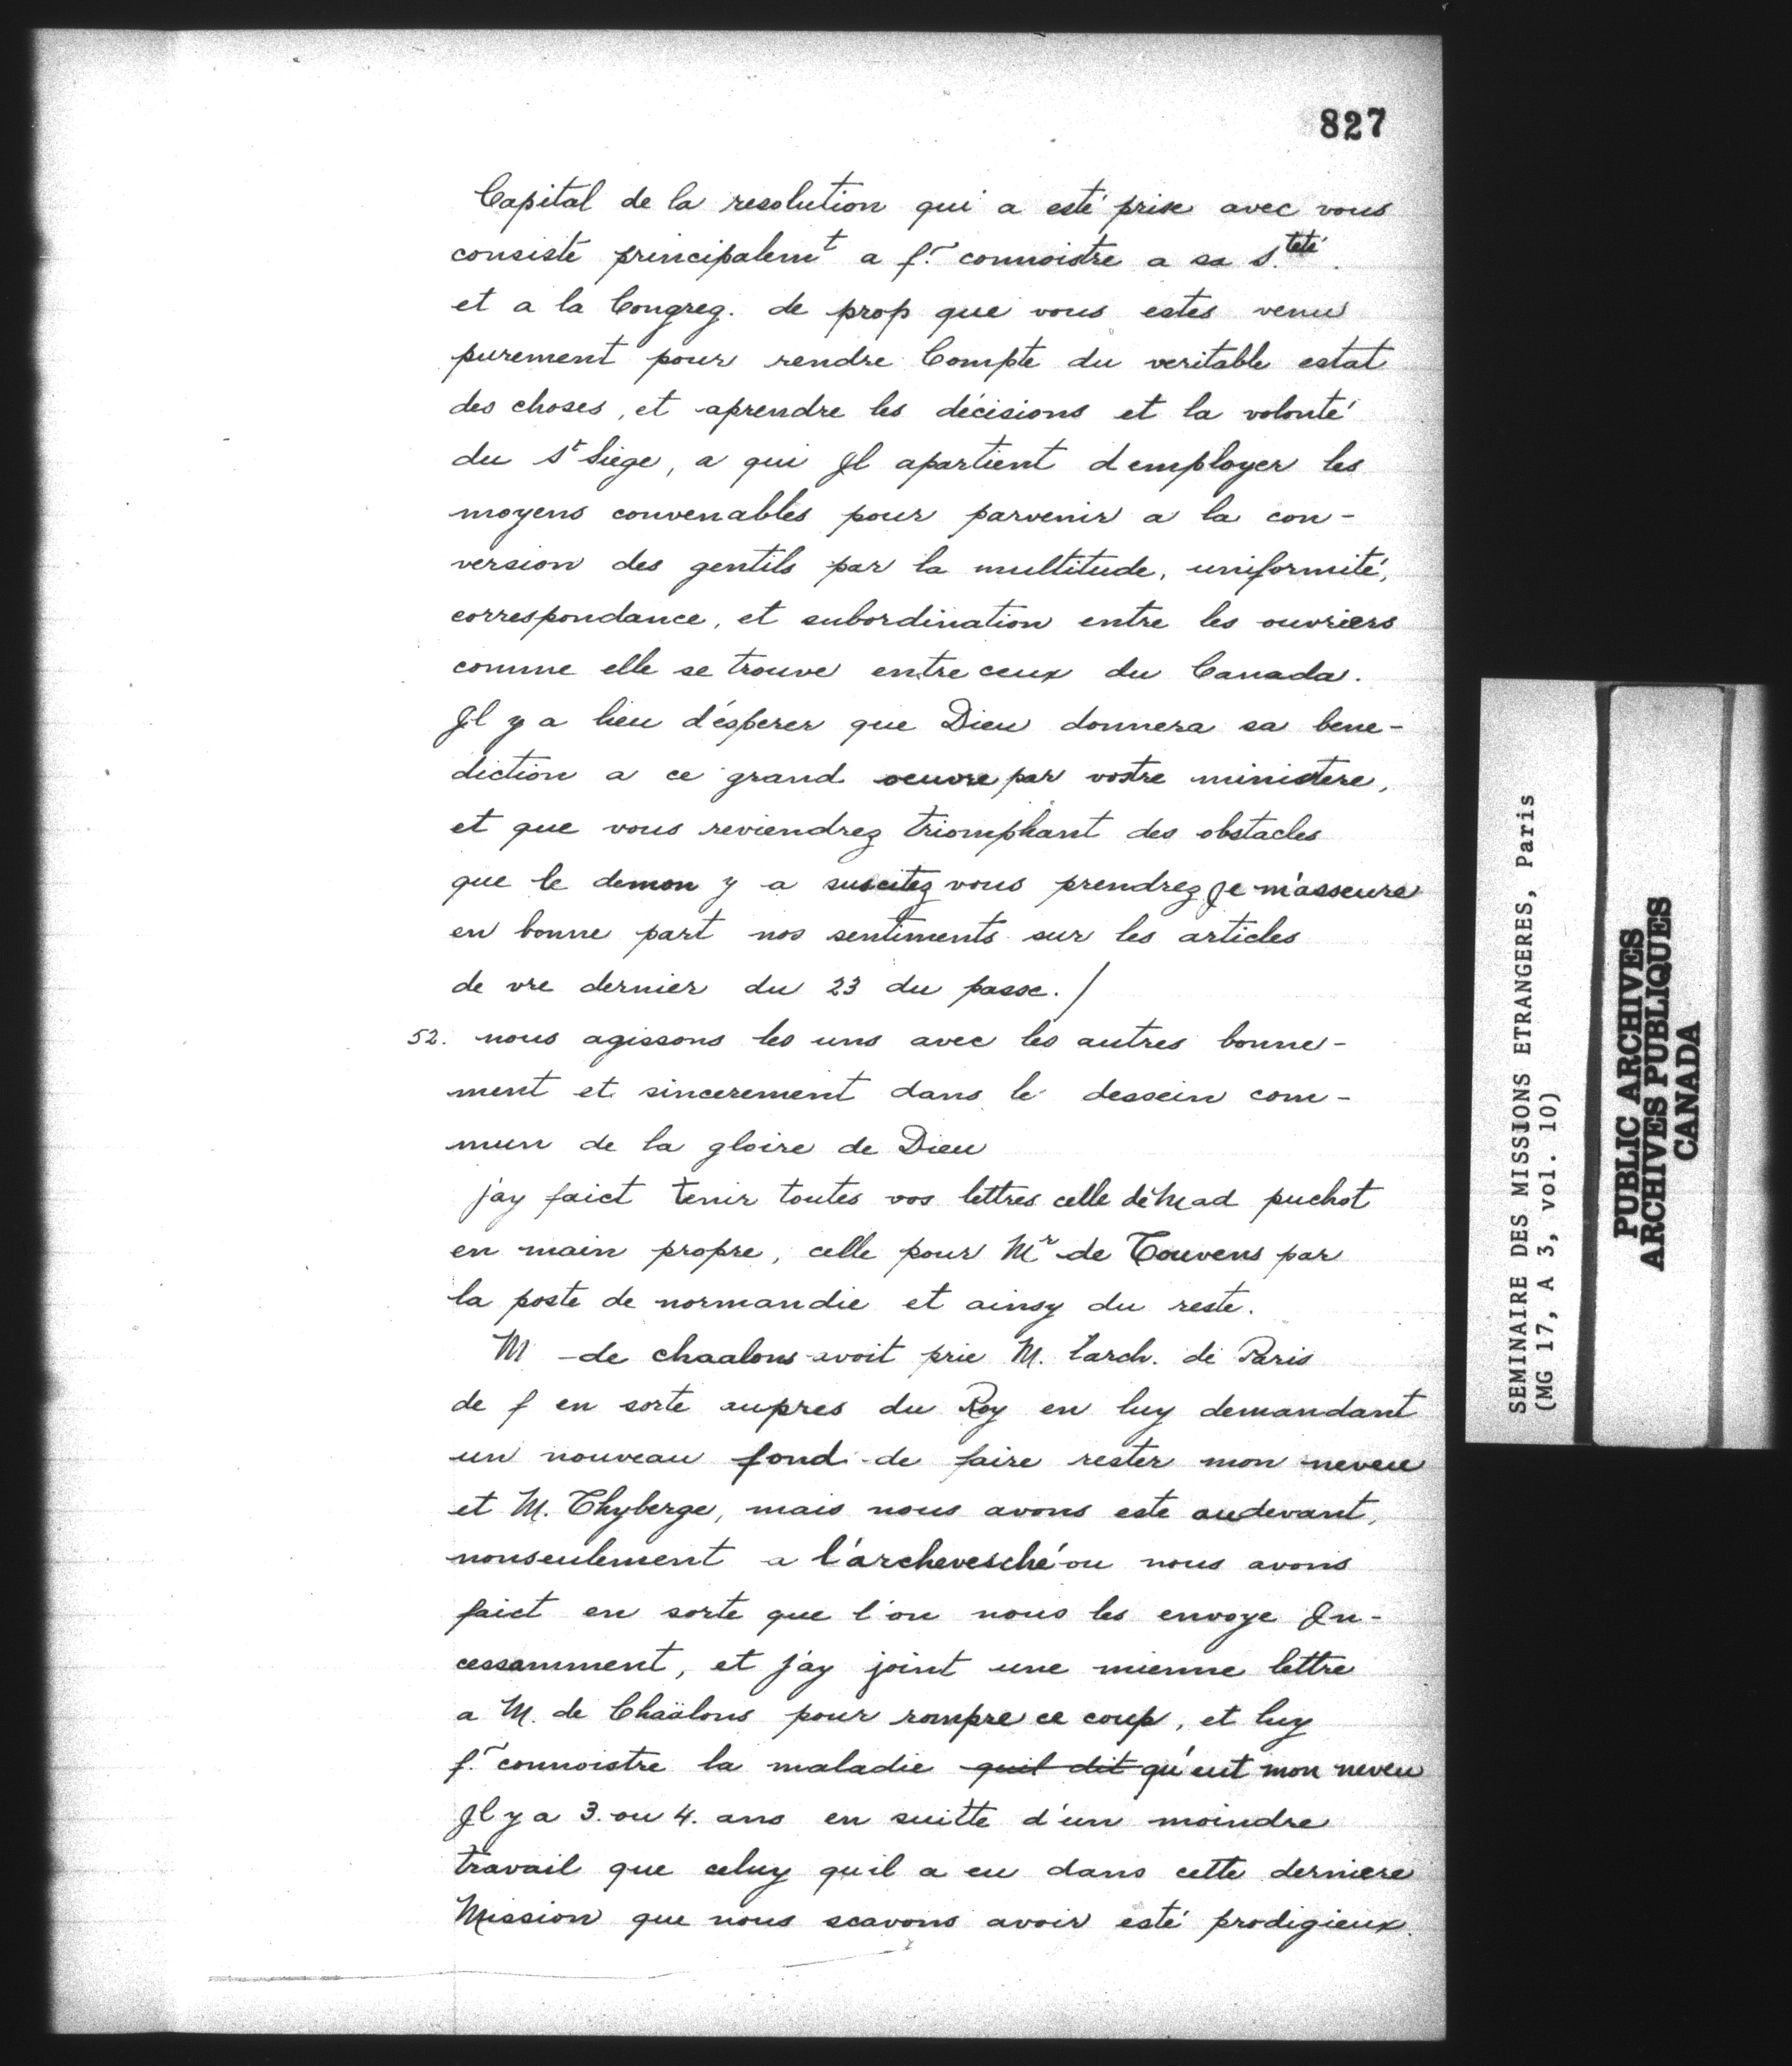 827
Capital de la resolution qui a esté prise avec vous
consiste principalemt a fr. connoistre a sa S.teté.
et a la Congreg. de prop que vous estes venu
purement pour rendre Compte du veritable estat
des choses, et aprendre les décisions et la volonté
du St Siege, a qui Jl apartient d employer les
moyens convenables pour parvenir a la con-
version des gentils par la multitude, uniformité,
correspondance, et subordination entre les ouvriers
comme elle se trouve entre ceux du Canada.
Jl y a lieu d'ésperer que Dieu donnera sa bene-
diction a ce grand oeuvre par vostre ministere,
et que vous reviendrez triomphant des obstacles
que le demon y a suscitez vous prendrez Je m'asseure
en bonne part nos sentiments sur les articles
de vre dernier du 23 du passe. /
52. nous agissons les uns avec les autres bonne-
ment et sincerement dans le dessein com-
mun de la gloire de Dieu
j'ay faict tenir toutes vos lettres celle de Mad puchot
en main propre, celle pour Mr de Touvens par
la poste de normandie et ainsy du reste.
M - de chaalons avoit prie M. l'arch. de Paris
de f en sorte aupres du Roy en luy demandant
un nouveau fond de faire rester mon neveu
et M. Thyberge, mais nous avons este audevant,
nonseulement a l'archevesché ou nous avons
faict en sorte que l'on nous les envoye Jn-
cessamment, et j'ay joint une mienne lettre
a M. de Chaälons pour rompre ce coup, et luy
fr. connoistre la maladie quil dit qu'eut mon neveu
Jl y a 3. ou 4. ans en suitte d'un moindre
travail que celuy quil a eu dans cette derniere
Mission que nous scavons avoir esté prodigieux.
SEMINAIRE DES MISSIONS ETRANGERES, Paris
(MG 17, A 3, vol. 10)
PUBLIC ARCHIVES
ARCHIVES PUBLIQUES
CANADA